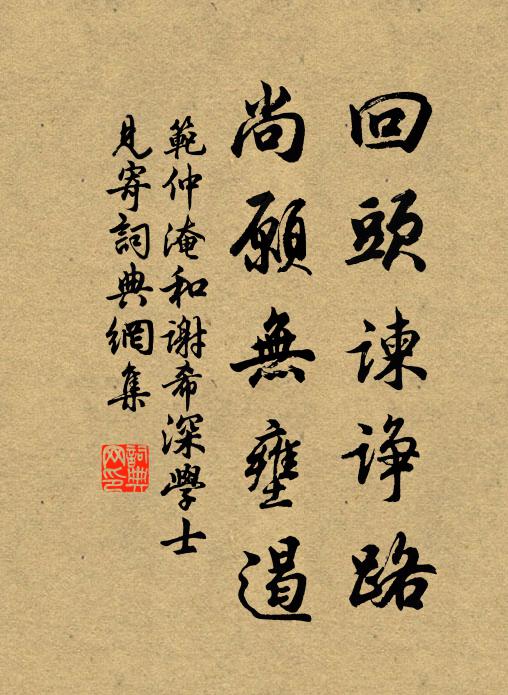 回頭諫諍路
尚願無壅遏
範仲淹和謝希深學士
見寄詞典網集
詞典网印